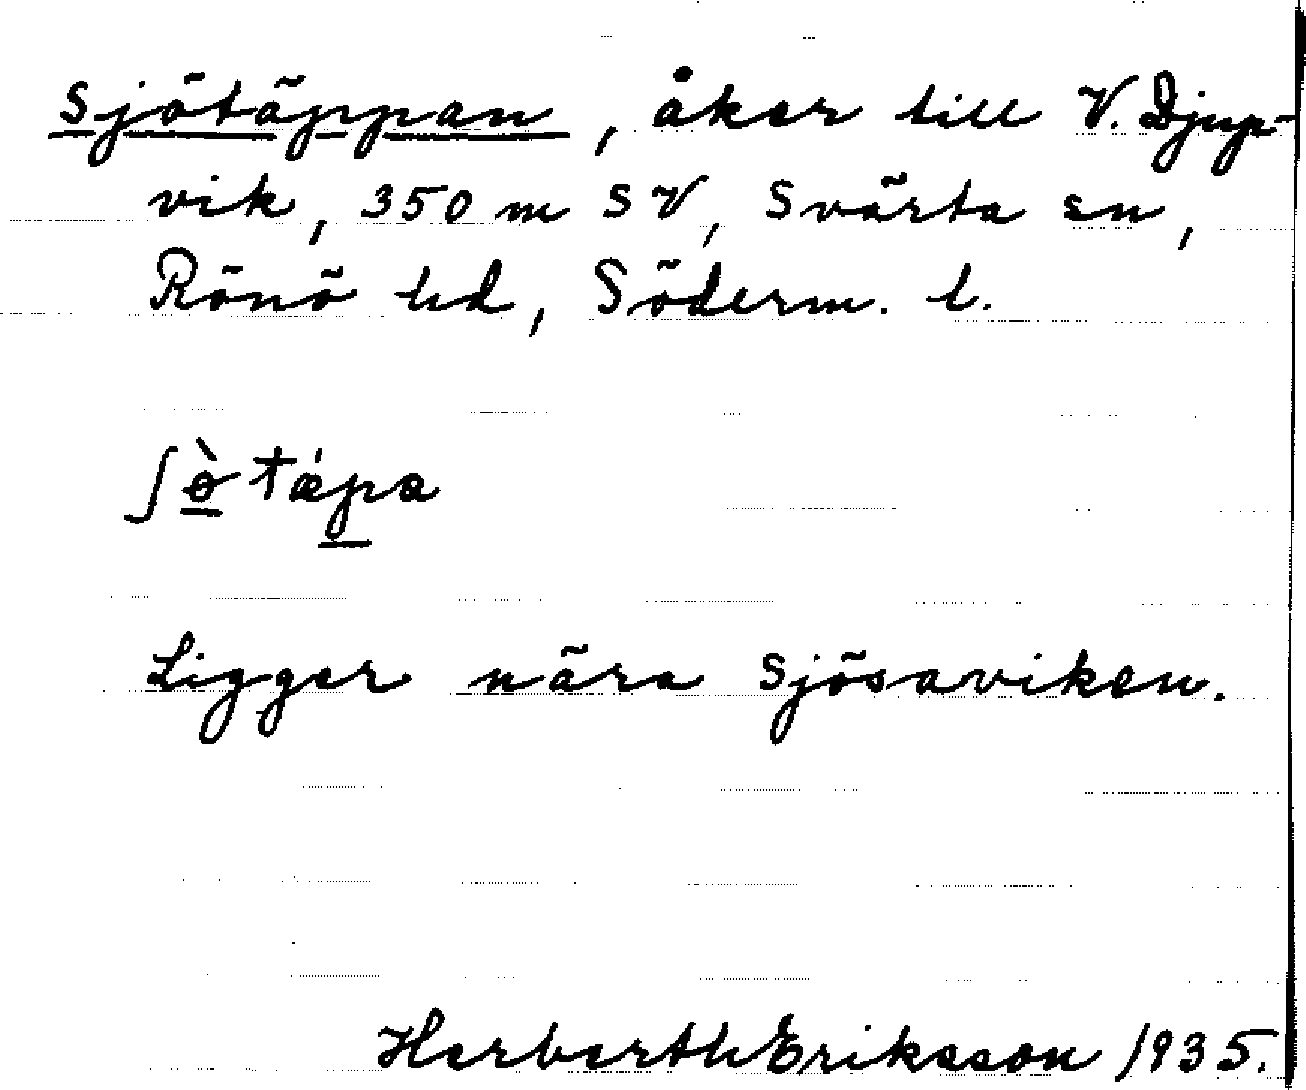 Sjötäppan, åker till V. Djup-
vik, 350 m SV, Svärta sn,
Rönö hd, Söderm. l.
ʃɵ̠̀tǽp̠a
Ligger nära Sjösaviken.
Herberth Eriksson 1935.